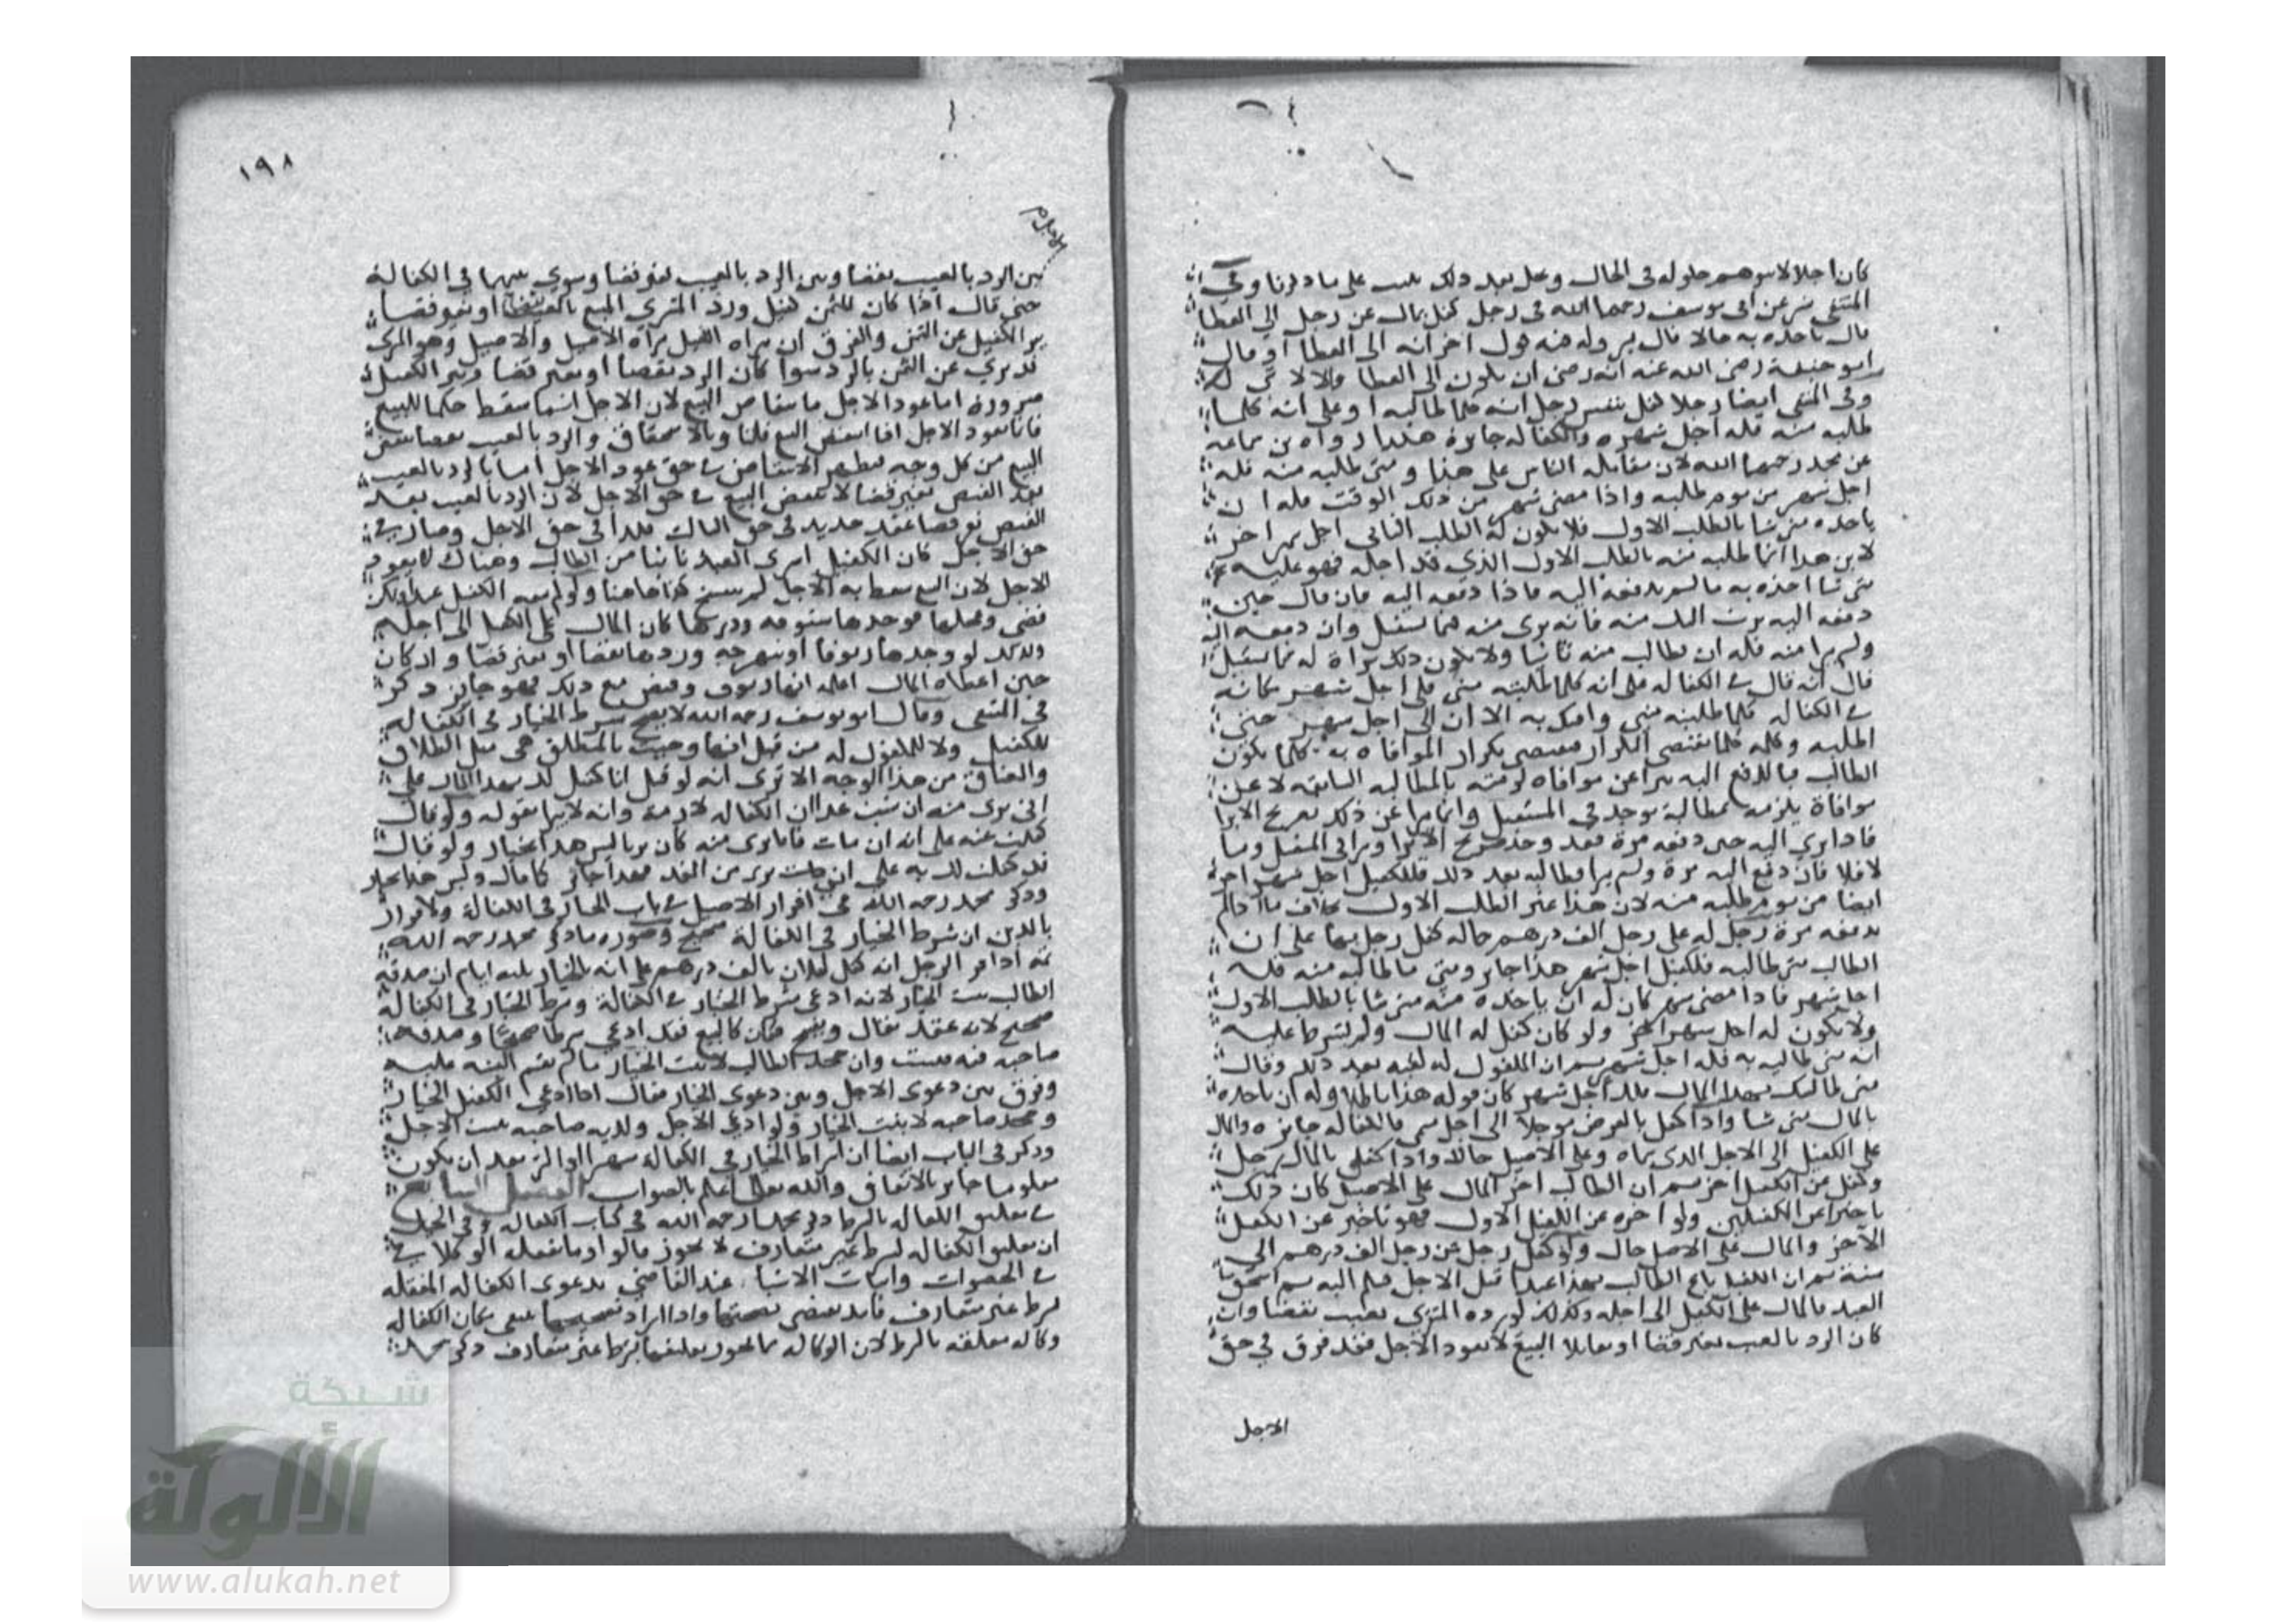 كان اجلا لا يتوهم حلوله في الحال وعلى بعد ذلك على ما ذكرنا وفي
المنتقى عن ابي يوسف رحمه الله في رجل كفل بمال عن رجل الى العطا
قال ياخذه به حالا قال الى العطا او قال
ابو حنيفة رضي الله عنه انه رضي ان يكون الى العطا والا لا
وفي المنتقى ايضا رجلا كفل بنفس رجل انه كلما طالبه او على انه كلما
طلبه منه فله اجل شهر والكفالة جايزة هكذا رواه بن سماعه
عن محمد رحمهما الله لان الناس على هذا ومتى طلبه منه فله
اجل شهر من يوم طلبه واذا مضى شهر من ذلك الوقت فله ان
ياخذه متى شا بالطلب الاول فلا يكون له الطلب الثاني اجل شهر اخر
لان هذا انما طلبه منه بالطلب الاول الذي قد اجله فهو عليه
متى شا اخذه به ما لم يدفعه اليه فاذا دفعه اليه فان قال حين
دفعه اليه برئت اليك منه فانه برى منه فيما يستقبل وان دفعه اليه
ولم يبرا منه فله ان يطالب منه ثانيا ولا يكون ذلك براة له فيما يستقبل
قال انه قال في الكفالة على انه كلما طلبته مني فلي اجل شهر كانه
في الكفالة كلما طلبته مني وافيك به الا ان لي اجل شهر حتى
اطلبه وكلمة كلما تقتضي التكرار فيقتضي تكرار الموافاة به كلما يكون
الطالب فبالدفع اليه يبرا عن موافاة لزمته بالمطالبة السابقة لا عن
موافاة يلزمه بمطالبة توجد في المستقبل وانما يبرا عن ذلك بصريح الابرا
فاذا برى اليه حين دفعه مرة فقد وجد صريح الابرا ويبرا في المستقبل وما
لا فلا فان دفع اليه مرة ولم يبرا وطالبه بعد ذلك فللكفيل اجل شهر اخر
ايضا من يوم طلبه منه لان هذا غير الطلب الاول بخلاف ما اذا لم
يدفعه مرة رجل له على رجل الف درهم حالة كفل رجل بها على ان
الطالب متى طالبه فللكفيل اجل شهر هذا جايز ومتى ما طالبه منه فله
اجل شهر فاذا مضى شهر كان له ان ياخذه منه متى شا بالطلب الاول
ولا يكون له اجل شهر اخر ولو كان كفل له المال ولم يشترط عليه
انه متى طالبه به فله اجل شهر ثم ان المكفول له لقيه بعد ذلك وقال
متى طالبتك بهذا المال فلك اجل شهر كان قوله هذا باطلا وله ان ياخذه
بالمال متى شا واذا كفل بالقرض موجلا الى اجل سمى فالكفالة جايزه والمال
على الكفيل الى الاجل الذي سماه وعلى الاصيل حالا واذا كفل بالمال رجل
وكفل من الكفيل اخر ثم ان الطالب اخر المال على الاصيل كان ذلك
تاخيرا عن الكفيلين ولو اخره عن الكفيل الاول فهو تاخير عن الكفيل
الاخر والمال على الاصيل حال ولو كفل رجل عن رجل الف درهم الى
سنة ثم ان الكفيل باع الطالب بهذا عبدا قبل الاجل فسلم اليه ثم استحق
العبد فالمال على الكفيل الى اجله وكذلك لو رده المشتري بعيب بقضا وان
كان الرد بالعيب بغير قضا او تقايلا البيع لا يعود الاجل فقد فرق في حق
الاجل
١٩٨
الاجل م
بين الرد بالعيب بقضا وبين الرد بالعيب بغير قضا وسوى بينهما في الكفالة
حتى قال اذا كان للثمن كفيل ورد المشتري المبيع بالعيب بقضا او بغير قضا
برا الكفيل عن الثمن والفرق ان براه الكفيل براه الاصيل والاصيل وهو المشتري
قد برى عن الثمن بالرد سوا كان الرد بقضا او بغير قضا وبرى الكفيل
ضرورة اما عود الاجل بانتقاض البيع لان الاجل انما سقط حكما للبيع
فانما يعود الاجل اذا انتقض البيع قلنا وبالاستحقاق والرد بالعيب بقضا ينتقض
البيع من كل وجه فيظهر الانتقاض في حق عود الاجل اما بالرد بالعيب
بعد القبض بغير قضا لا ينتقض البيع في حق الاجل لان الرد بالعيب بعد
القبض بغير قضا عقد جديد في حق الثالث فكذا في حق الاجل وصار في
حق الاجل كان الكفيل اشترى العبد ثانيا من الطالب وهناك لا يعود
الاجل لان البيع سقط به الاجل لم ينتقض كذا هاهنا ولو لم يبعه الكفيل عبدا ولكن
قضى وعجلها فوجدها ستوقة وردها كان المال على الكفيل الى اجله
وكذلك لو وجدها زيوفا او نبهرجه وردها بقضا او بغير قضا وان كان
حين اعطاه المال اعلمه انها زيوف وقبض مع ذلك فهو جايز ذكر
في المنتقى وقال ابو يوسف رحمه الله لا يصح شرط الخيار في الكفالة
للكفيل ولا للمكفول له من قبل انها وجبت بالمنطلق هي مثل الطلاق
والعتاق من هذا الوجه الا ترى انه لو قيل انا كفيل لك بهذا المال على
اني برى منه ان شيت غدا ان الكفالة لازمة وانه لا يبرا بقوله ولو قال
كفلت عنه على انه ان مات فانا برى منه كان بريا ليس هذا بخيار ولو قال
قد كفلت لك به على اني برى من الغد فهذا جايز كما قال وليس هذا بخيار
وذكر محمد رحمه الله في اقرار الاصل في باب الخيار في الكفالة والاقرار
بالدين ان شرط الخيار في الكفالة صحيح وصورة ما ذكر محمد رحمه الله
ثمة اذا اقر الرجل انه كفل لفلان بالف درهم على انه بالخيار ثلثه ايام ان صدقه
الطالب ثبت الخيار لانه ادعى شرط الخيار في الكفالة وشرط الخيار في الكفالة
صحيح لانه عقد يقال ويفسخ فكان كالبيع فقد ادعى شرطا صحيحا وصدقه
صاحبه فيه فيثبت وان جحد الطالب لا يثبت الخيار ما لم يقم البينة عليه
وفرق بين دعوى الاجل وبين دعوى الخيار فقال اذا ادعى الكفيل الخيار
وجحد صاحبه لا يثبت الخيار ولو ادعى الاجل وكذبه صاحبه يثبت الاجل
وذكر في الباب ايضا ان اشتراط الخيار في الكفالة شهرا او اكثر بعد ان يكون
معلوما جايز بالاتفاق والله تعالى اعلم بالصواب الفصل السابع
في تعليق الكفالة بالشرط ذكر محمد رحمه الله في كتاب الكفالة وفي الحيل
ان تعليق الكفالة بشرط غير متعارف لا يجوز قالوا وما يفعله الوكلا في
في الخصومات واثبات الاشيا عند القاضي بدعوى الكفالة المعلقه
بشرط غير متعارف فاذا اراد تصحيحها ينبغي مكان الكفالة
وكالة معلقه بالشرط لان الوكالة مما يجوز تعليقها بشرط غير متعارف ذكر محمد
شبكة
الألولة
www.alukah.net